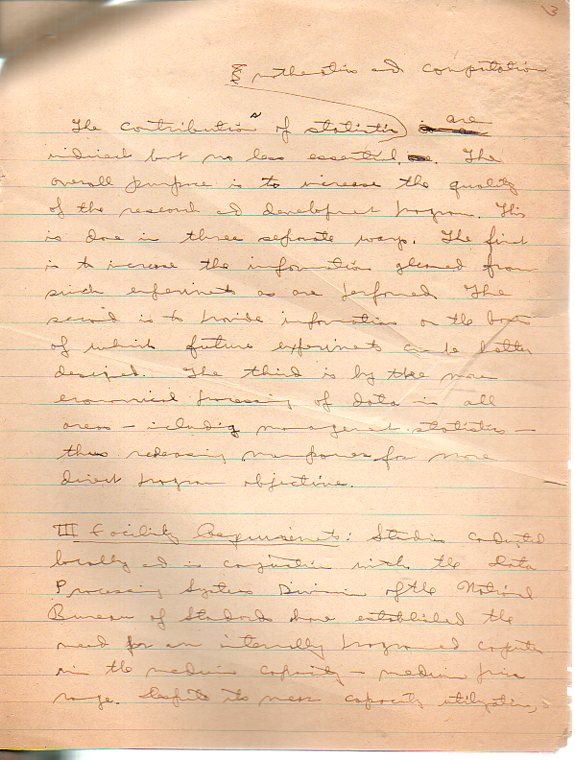 3
& mathematics and computation
The contributions of statistics are
indirect but no less essential. The
overall purpose is to increase the quality
of the research ad development program. This
is done in three separate ways. The first
is to increase the information gleaned from
such experiments as are performed. The
second is to provide information on the basis
of which future experiments can be better
designed. The third is by the more
economical processing of data in all
areas — including management statistics —
thus releasing manpower for more
direct program objectives.
III Facility Requirements: Studies conducted
locally ad in conjunction with the Data
Processing Systems Division of the National
Bureau of Standards have established the
need for an internally programmed computer
in the medium capacity — medium price
range. Despite its near capacity utilization,